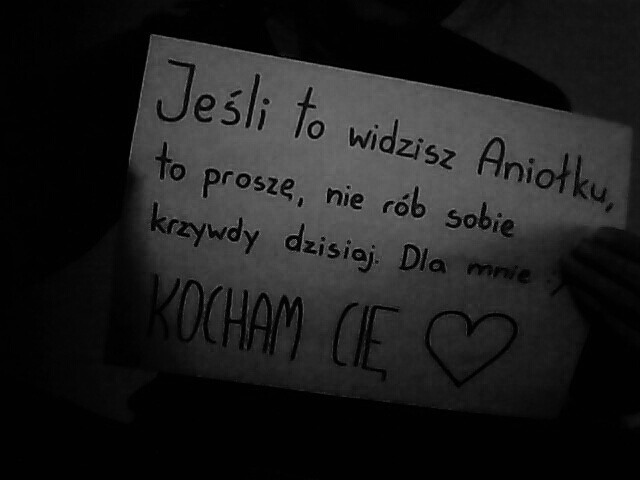 Jeśli to widzisz Aniołku,
to proszę, nie rób sobie
krzywdy dzisiaj. Dla mnie :)
KOCHAM CIĘ ♡